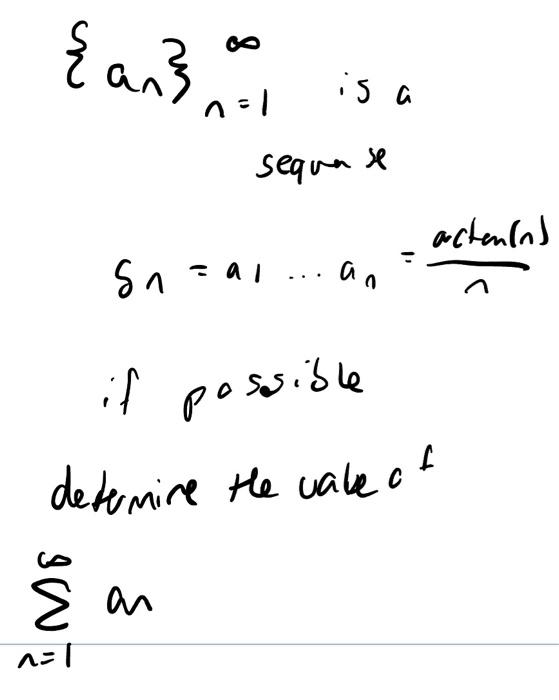 {an}∞n=1 is a
sequence
Sn = a1 ... an = arctan(n)/n
if possible
determine the value of
∞
Σ an
n=1